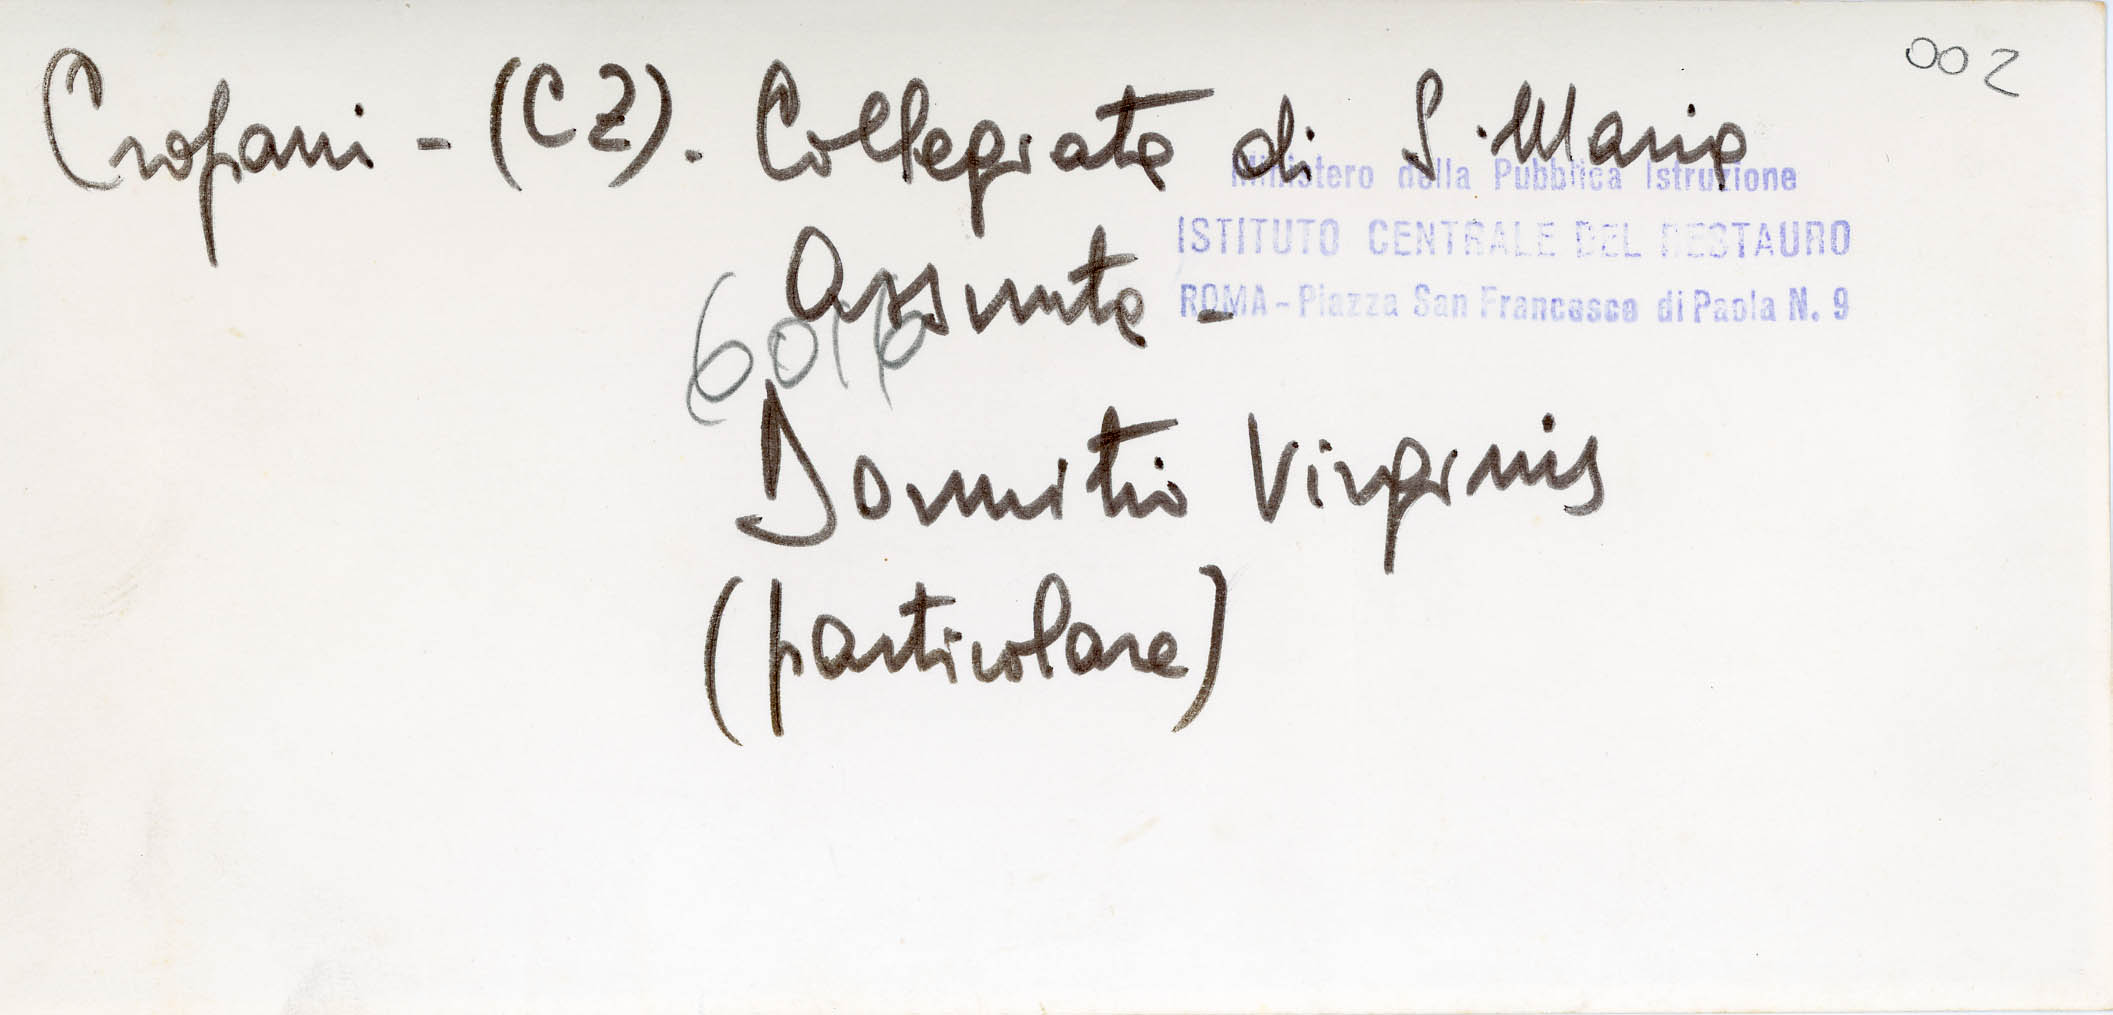 002
Cropani - (CZ). Collegiata di S. Maria
Assunta -
Dormitio Virginis
(particolare)
Ministero della Pubblica Istruzione
ISTITUTO CENTRALE DEL RESTAURO
ROMA - Piazza San Francesco di Paola N. 9